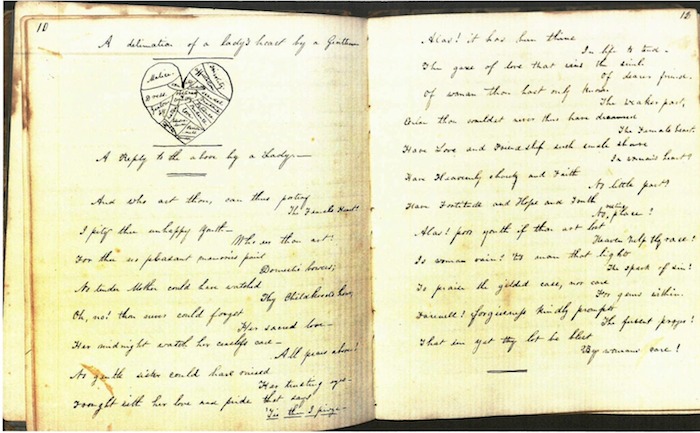 10
A delineation of a lady's heart by a Gentleman
Malice
Dress
A Reply to the above by a Lady—
And who art thou, can thus portray
The Female Heart?
I pity thee unhappy youth—
Who ere thou art!
For thee no pleasant memories paint
Domestic bowers;
No tender Mother could have watched
Thy Childhood's hour,
Oh, no! thou never could forget
Her sacred love—
Her midnight watch her ceaseless care—
All praise above!
No gentle sister could have raised
Her trusting eyes—
Fraught with her love and pride that says
'Tis thee I prize—
12
Alas! it has been thine
In life to tend—
The gaze of love that the smile
Of dearest friend.
Of woman thou hast only known
The weaker part,
Or thou wouldst never thus have dreamed
The Female heart.
Have Love and Friendship such small share
In woman's heart?
Have Heavenly charity and Faith
No little part?
Have Fortitude and Hope and Truth
No, place!
Alas! poor youth if thou art lost
Heaven help thy race!
Is woman vain? to man that light
The spark of sin!
To praise the gilded case, nor care
For gems within.
Farewell! forgiveness kindly prompts
The fervent prayer!
That in yet thy lot be blest
By woman's care!